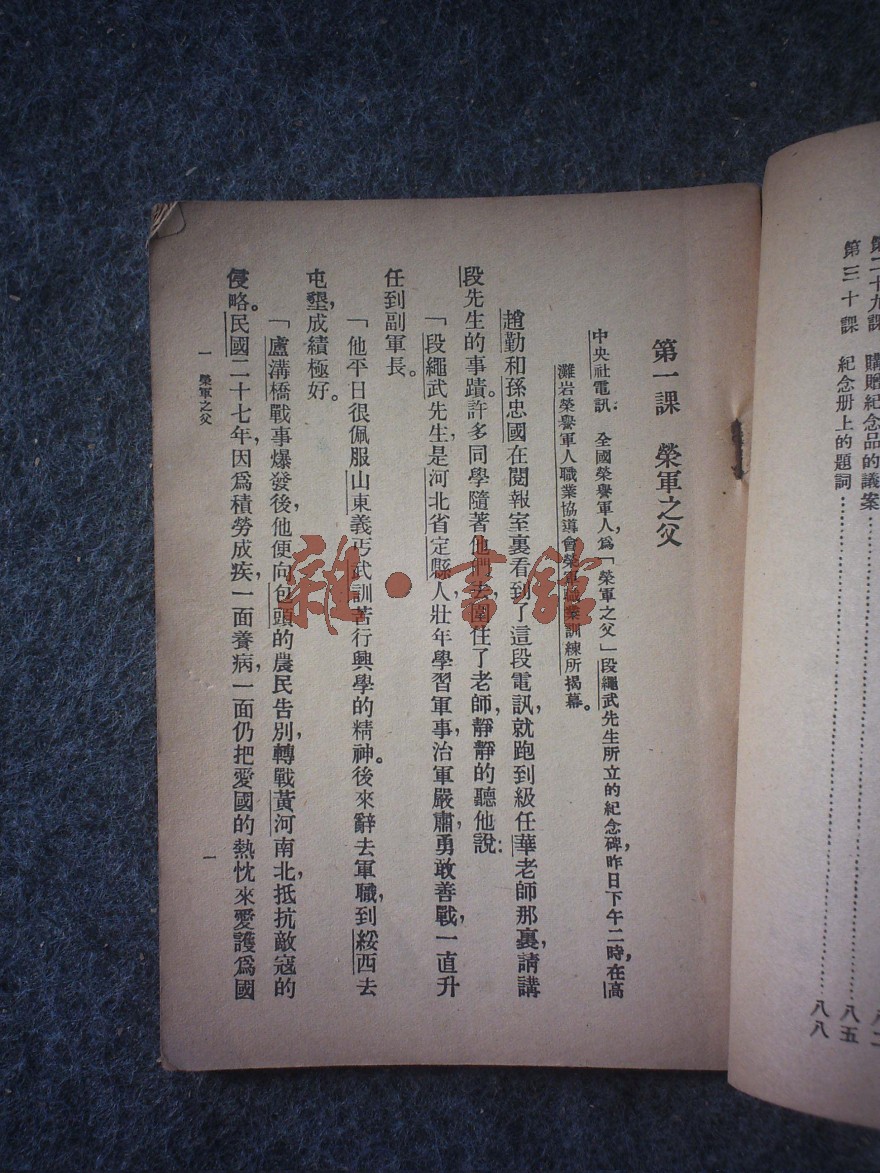 第二十九課 購贈紀念品的議案……………………八五
第三十課 紀念册上的題詞……………………八八
第一課 榮軍之父
中央社電訊:全國榮譽軍人,爲「榮軍之父」段繩武先生所立的紀念碑,昨日下午二時,在高
灘岩榮譽軍人職業協導會榮軍職業訓練所揭幕。
趙勤和孫忠國在閱報室裏看到了這段電訊,就跑到級任華老師那裏,請講
段先生的事蹟。許多同學隨著他們去,圍住了老師,靜靜的聽他說:
「段繩武先生,是河北省定縣人,壯年學習軍事,治軍嚴肅,勇敢善戰,一直升
任到副軍長。
「他平日很佩服山東義丐武訓苦行興學的精神。後來辭去軍職,到綏西去
屯墾,成績極好。
「盧溝橋戰事爆發後,他便向包頭的農民告別,轉戰黃河南北,抵抗敵寇的
侵略。民國二十七年,因爲積勞成疾,一面養病,一面仍把愛國的熱忱來愛護爲國
一 榮軍之父 一
雜·書館